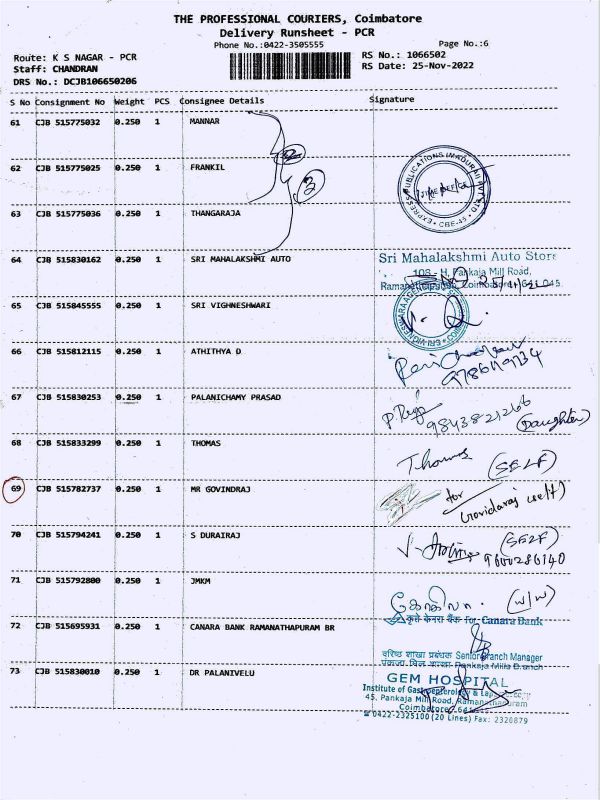 THE PROFESSIONAL COURIERS, Coimbatore
Delivery Runsheet - PCR
Phone No.:0422-3505555
Page No.:6
Route: K S NAGAR - PCR
RS No.: 1066502
Staff: CHANDRAN
RS Date: 25-Nov-2022
DRS No.: DCJB106650206
S No Consignment No Weight PCS Consignee Details Signature
61 CJB 515775032 0.250 1 MANNAR
62 CJB 515775025 0.250 1 FRANKIL
3
63 CJB 515775036 0.250 1 THANGARAJA
64 CJB 515830162 0.250 1 SRI MAHALAKSHMI AUTO
Sri Mahalakshmi Auto Store
108 - H, Pankaja Mill Road,
65 CJB 515845555 0.250 1 SRI VIGHNESHWARI
66 CJB 515812115 0.250 1 ATHITHYA D
67 CJB 515830253 0.250 1 PALANICHAMY PRASAD
9843821266
(Daughter)
68 CJB 515833299 0.250 1 THOMAS
Thomas (SELF)
69 CJB 515782737 0.250 1 MR GOVINDRAJ
for
(self)
70 CJB 515794241 0.250 1 S DURAIRAJ
(SELF)
9600286140
71 CJB 515792800 0.250 1 JMKM
கோகிலா. (w/w)
कृते केनरा बैंक For Canara Bank
72 CJB 515695931 0.250 1 CANARA BANK RAMANATHAPURAM BR
वरिष्ठ शाखा प्रबंधक Senior Branch Manager
Pankaja Mills Branch
73 CJB 515830010 0.250 1 DR PALANIVELU
GEM HOSPITAL
Institute of Gastroenterology &
45, Pankaja Mill Road, Ramanathapuram
Coimbatore
0422-2325100 (20 Lines) Fax: 2320879